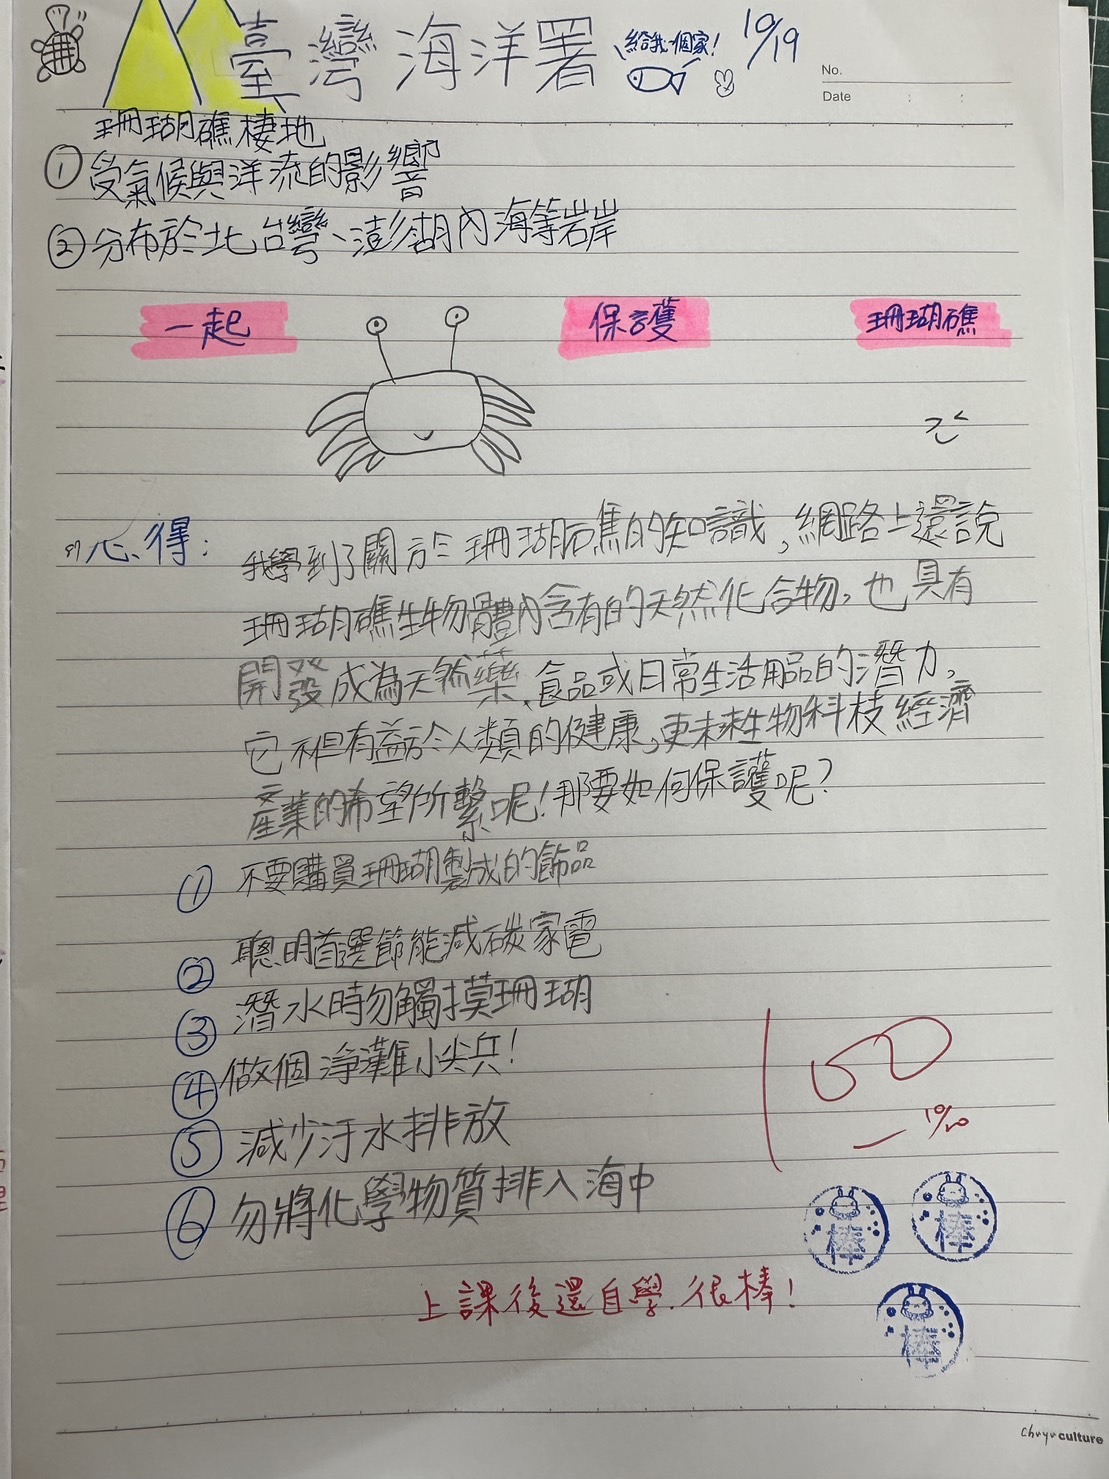 臺灣海洋署 給我個家! 10/19
No.
Date
珊瑚礁棲地
① 受氣候與洋流的影響
② 分布於北台灣、澎湖內海等岩岸
一起 保護 珊瑚礁
心得:
我學到了關於珊瑚礁的知識,網路上還說
珊瑚礁生物體內含有的天然化合物,也具有
開發成為天然藥、食品或日常生活用品的潛力。
它不但有益於人類的健康,更未來生物科技經濟
產業的希望所繫呢!那要如何保護呢?
① 不要購買珊瑚製成的飾品
② 聰明首選節能減碳家電
③ 潛水時勿觸摸珊瑚
④ 做個淨灘小尖兵!
⑤ 減少汙水排放
⑥ 勿將化學物質排入海中
100
10/20
棒 棒
棒
上課後還自學.很棒!
Chuyu culture